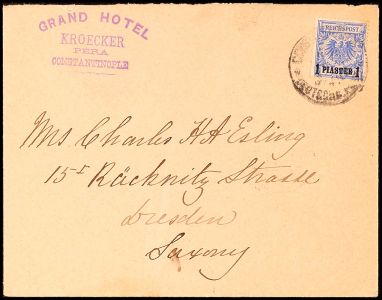 GRAND HOTEL
KROECKER
PERA
CONSTANTINOPLE
REICHSPOST
1 PIASTER 1
Mrs Charles H A Esling
15 r Räcknitz Strasse
Dresden
Saxony